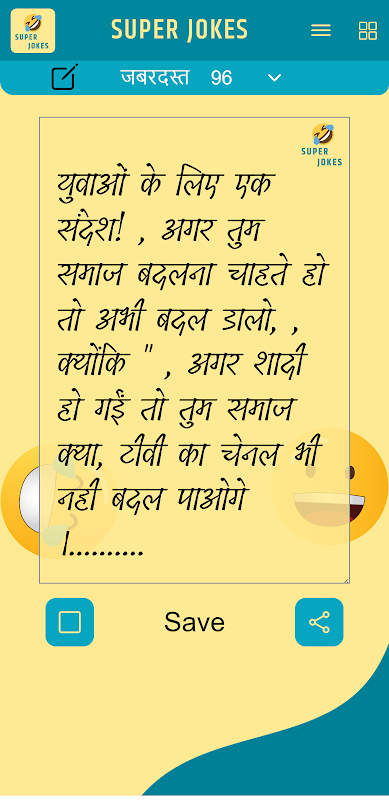 SUPER JOKES
SUPER JOKES
जबरदस्त 96
SUPER JOKES
युवाओं के लिए एक
संदेश! , अगर तुम
समाज बदलना चाहते हो
तो अभी बदल डालो, ,
क्योंकि " , अगर शादी
हो गईं तो तुम समाज
क्या, टीवी का चेनल भी
नही बदल पाओगे
|..........
Save